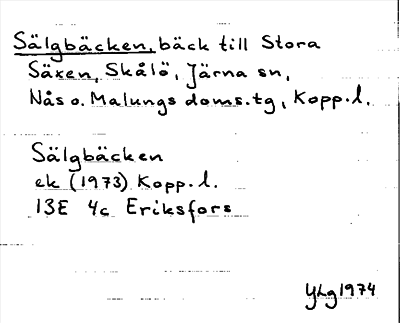 Sälgbäcken, bäck till Stora
Säxen, Skålö, Järna sn,
Nås o. Malungs doms.tg, Kopp.l.
Sälgbäcken
ek (1973) Kopp.l.
13E 4c Eriksfors
YLg 1974